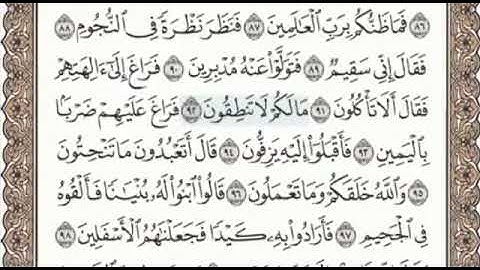 ٨٦ فَمَا ظَنُّكُم بِرَبِّ ٱلْعَٰلَمِينَ ٨٧ فَنَظَرَ نَظْرَةً فِى ٱلنُّجُومِ ٨٨
فَقَالَ إِنِّى سَقِيمٌ ٨٩ فَتَوَلَّوْا۟ عَنْهُ مُدْبِرِينَ ٩٠ فَرَاغَ إِلَىٰٓ ءَالِهَتِهِمْ
فَقَالَ أَلَا تَأْكُلُونَ ٩١ مَا لَكُمْ لَا تَنطِقُونَ ٩٢ فَرَاغَ عَلَيْهِمْ ضَرْبًۢا
بِٱلْيَمِينِ ٩٣ فَأَقْبَلُوٓا۟ إِلَيْهِ يَزِفُّونَ ٩٤ قَالَ أَتَعْبُدُونَ مَا تَنْحِتُونَ
٩٥ وَٱللَّهُ خَلَقَكُمْ وَمَا تَعْمَلُونَ ٩٦ قَالُوا۟ ٱبْنُوا۟ لَهُۥ بُنْيَٰنًا فَأَلْقُوهُ
فِى ٱلْجَحِيمِ ٩٧ فَأَرَادُوا۟ بِهِۦ كَيْدًا فَجَعَلْنَٰهُمُ ٱلْأَسْفَلِينَ ٩٨